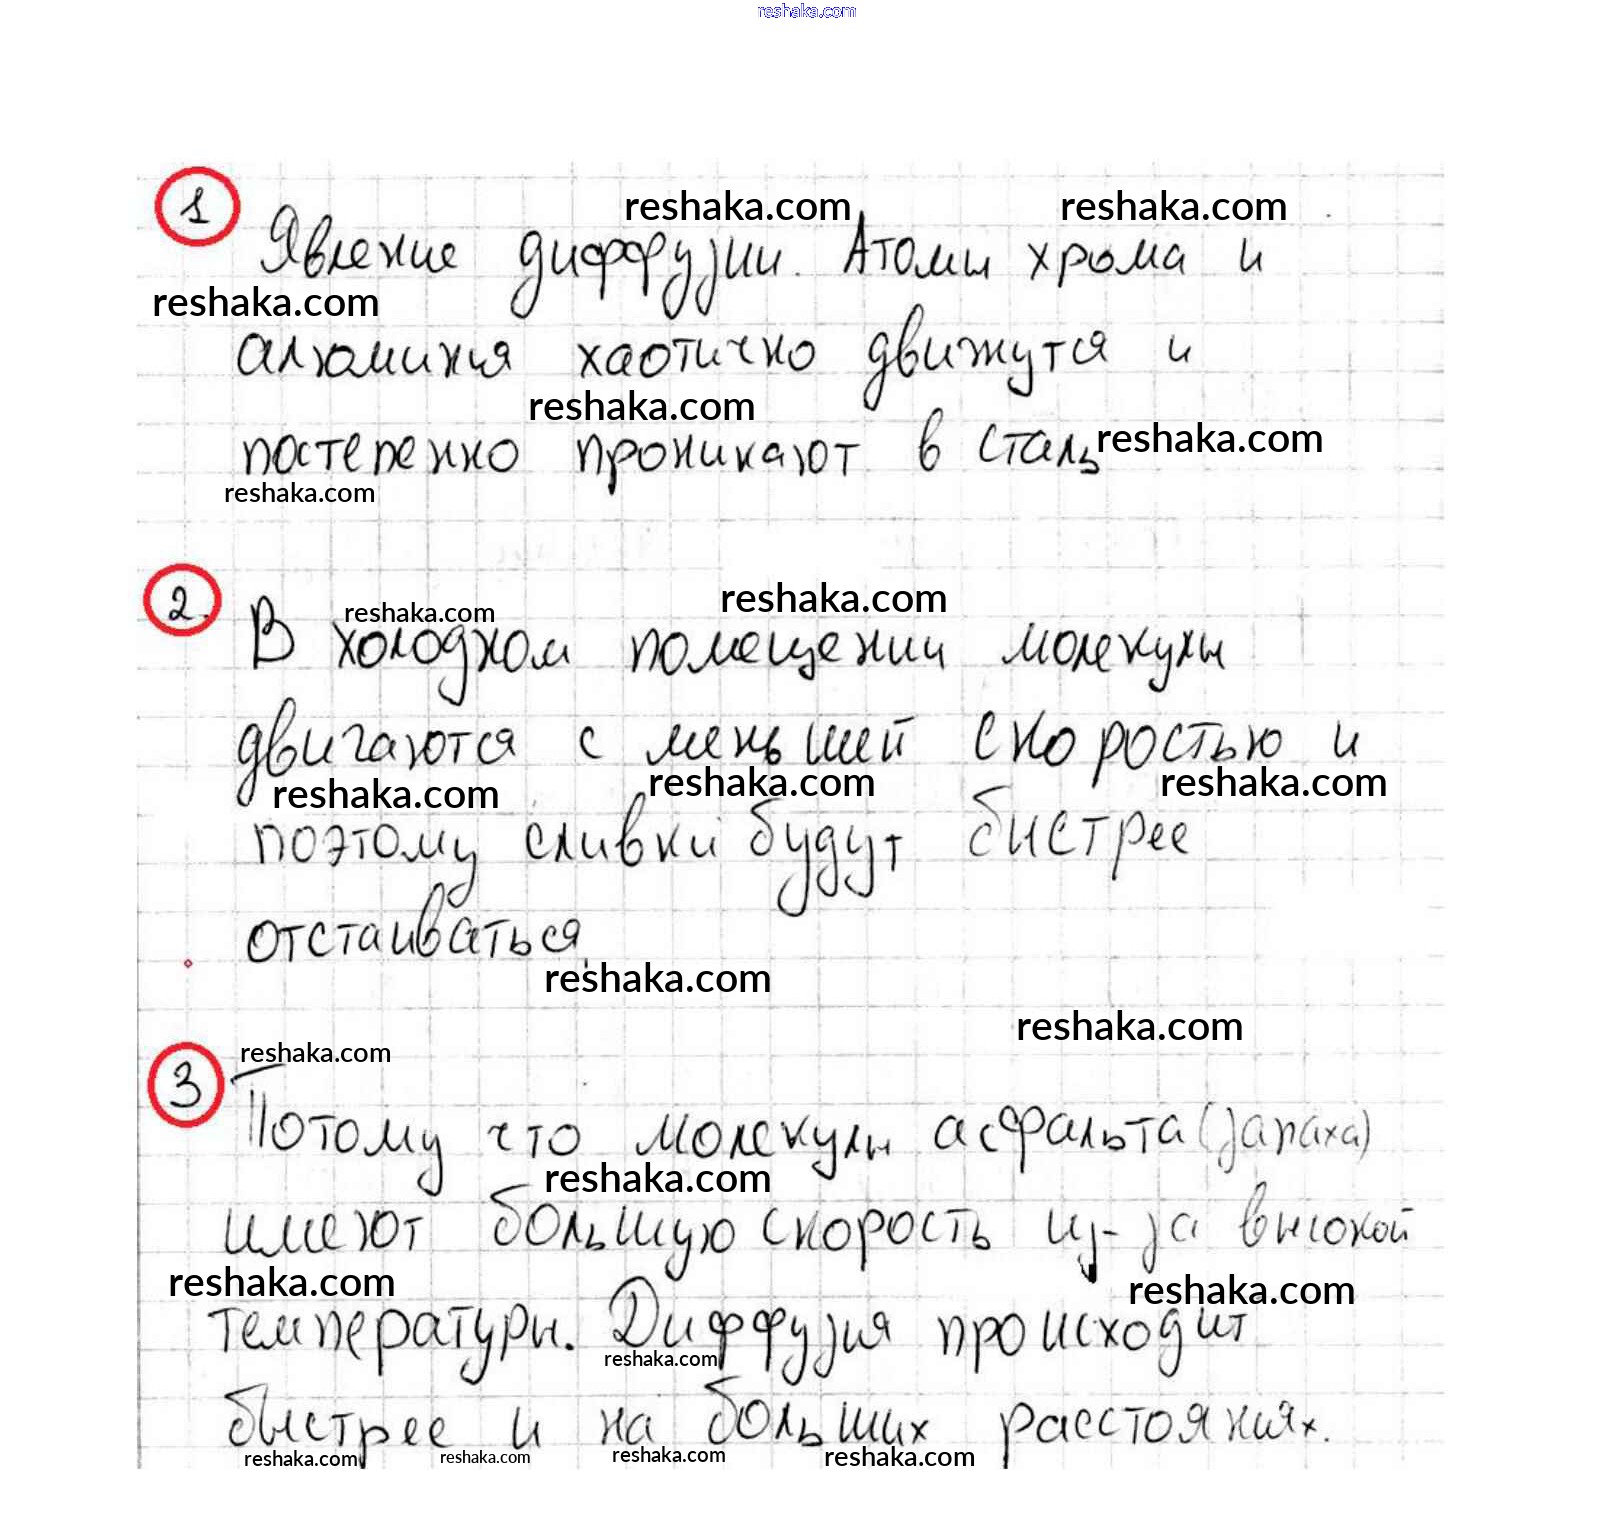 reshaka.com
1
reshaka.com reshaka.com
Явление диффузии. Атомы хрома и
reshaka.com
алюминия хаотично движутся и
reshaka.com
постепенно проникают в сталь
reshaka.com
reshaka.com
2.
reshaka.com
reshaka.com
В холодном помещении молекулы
двигаются с меньшей скоростью и
reshaka.com reshaka.com reshaka.com
поэтому сливки будут быстрее
отстаиваться
reshaka.com
reshaka.com
3
reshaka.com
Потому что молекулы асфальта (запаха)
reshaka.com
имеют большую скорость из-за высокой
reshaka.com reshaka.com
температуры. Диффузия происходит
reshaka.com
быстрее и на больших расстояниях.
reshaka.com reshaka.com reshaka.com reshaka.com